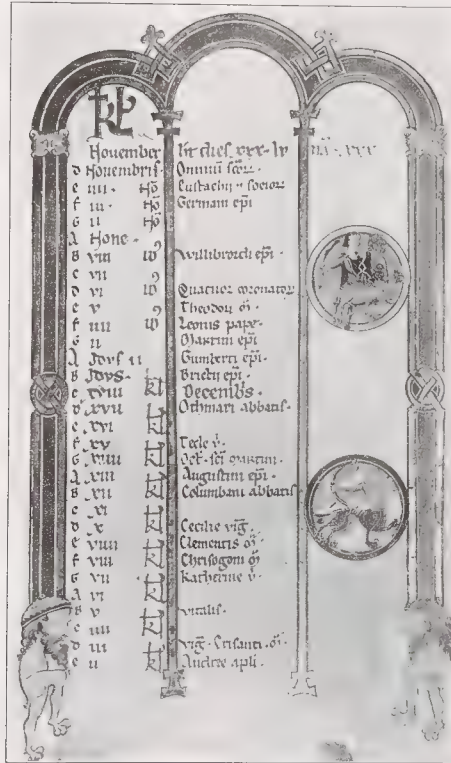 KL
November hт dies xxx · lv xxx
d Novembris Omnium scōr
e iiii · No Eustachii
f iii No Germani epi
G ii No
A None ·
B viii Willibrordi epi
c vii
d vi Quatuor coronator
e v Theodori m
f iiii Leonis pape ·
G ii Martini epi
A Idus ii Gumberti epi ·
B Idus · Bricii epi ·
c xviii kl Decembris ·
d xvii kl Othmari abbatis ·
e xvi kl
f xv kl Tecle v ·
G xiiii kl Oct · sci martini ·
A xiii kl Augustini epi ·
B xii kl Columbani abbatis
c xi kl
d x kl Cecilie virg
e viiii kl Clementis m
f viii kl Chrisogoni m
G vii kl Katherine v ·
A vi kl
B v kl vitalis ·
c iiii kl
d iii kl vig · Crisanti · m
e ii kl Andree apli ·